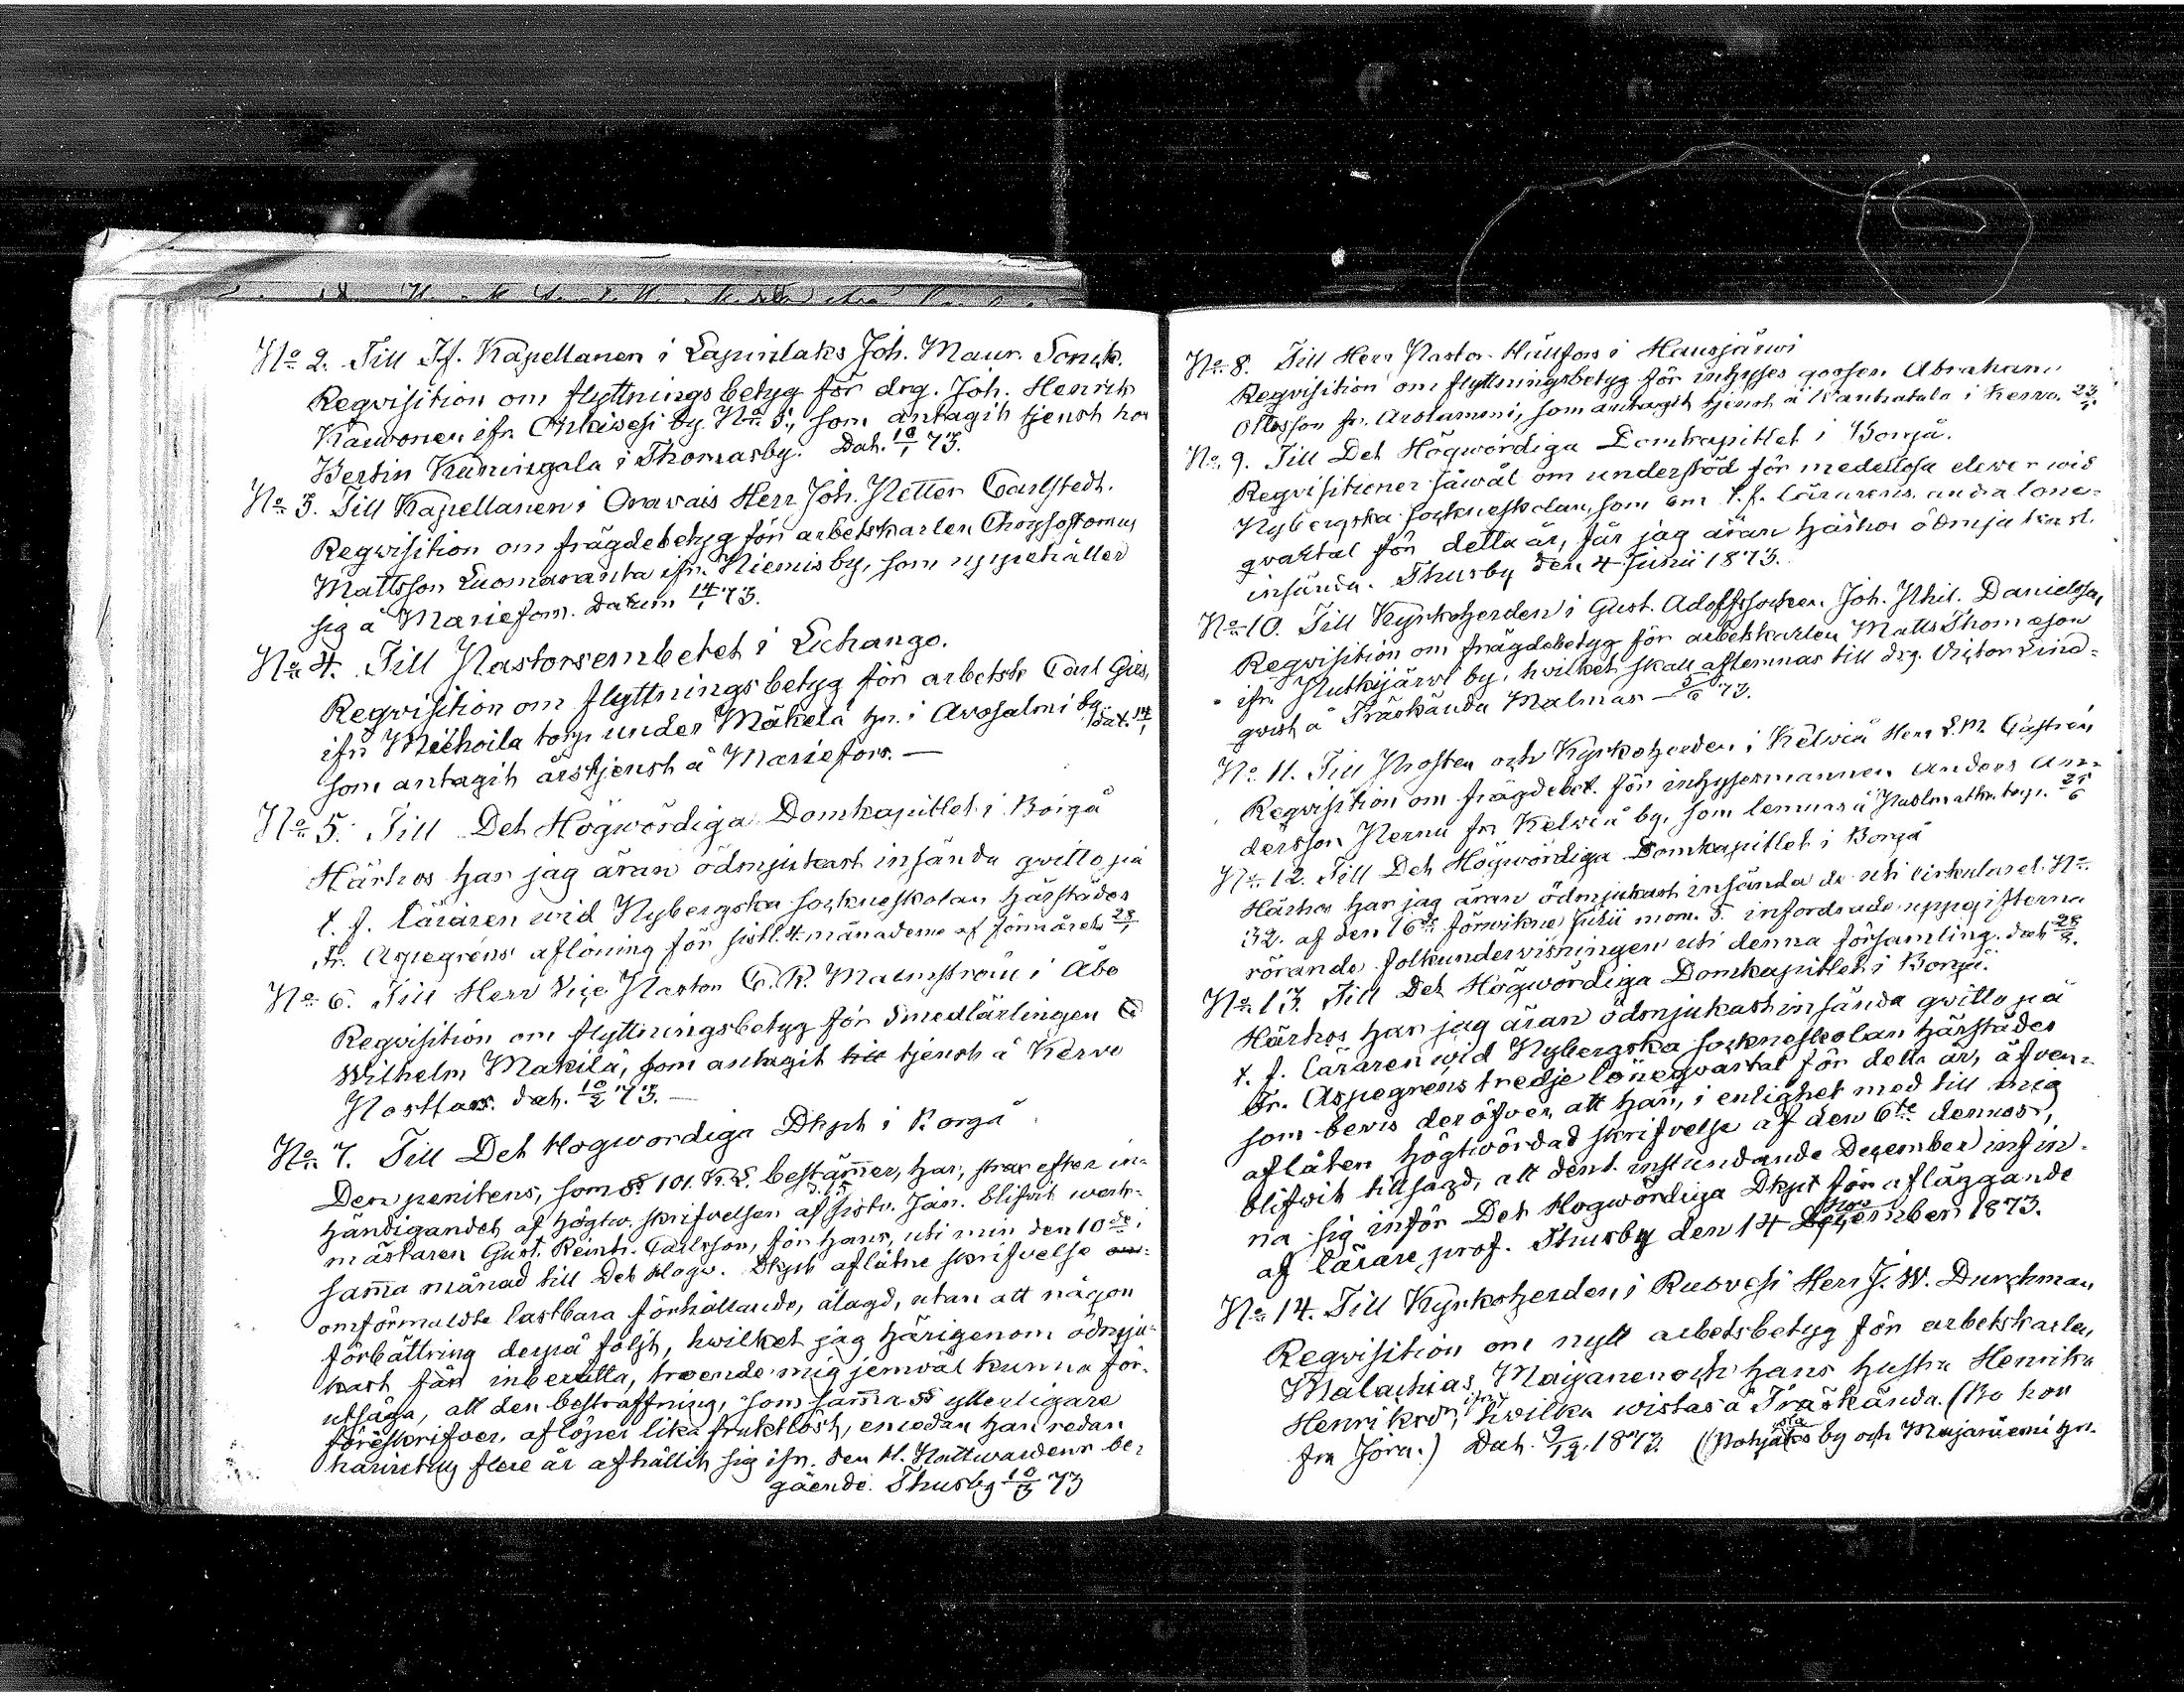 No 2. Till Tf. Kapellanen i Lapinlaks Joh. Maur. Sonck.
Reqvisition om flyttningsbetyg för drg. Joh. Henrik
Kauvonen ifr. Onkivesi by No 5, som antagit tjenst hos
Bertin Kuningala i Thomasby. Dat. 10/1 73.
No 3. Till Kapellanen i Oravais Herr Joh. Petter Carlstedt.
Reqvisition om frägdebetyg för arbetskarlen Chrysostomus
Mattsson Luomaranta ifr. Niemis by, som uppehåller
sig å Mariefors. Datum 14/1 73.
No 4. Till Pastorsembetet i Luhango.
Reqvisition om flyttningsbetyg för arbetsk. Carl Gust.
ifr. Mickoila torp under Mäkelä hn. i Avosalmi by
som antagit årstjenst å Mariefors. — dat. 14/1
No 5. Till Det Högwördiga Domkapitlet i Borgå
Härhos har jag äran ödmjukast insända qvitto på
t. f. Läraren wid Nybergska sockneskolan härstädes
Fr. Aspegréns aflöning för sistl. 4 månaderne af förra året 28/1
No 6. Till Herr Vice Pastor C. R. Malmström i Åbo
Reqvisition om flyttningsbetyg för Smedlärlingen G
Wilhelm Makilä, som antagit till tjenst å Kervo
Postfars. dat. 10/2 73. —
No 7. Till Det Högwördiga Dkpt i Borgå
Den penitens, som §§ 101. K.L. bestämmer, har, strax efter in-
händigandet af högtw. skrifvelsen af d. 15 sistv. Jan. blifvit werk-
mästaren Gust. Reinh. Carlsson, för hans, uti min den 10de i
samma månad till Det Högw. Dkpt aflåtne skrifvelse om-
omförmälda lastbara förhållande, ålagd, utan att någon
förbättring derpå följt, hwilket jag härigenom ödmju-
kast får inberätta, troende mig jemväl kunna för-
utsäga, att den bestraffning, som samma § ytterligare
föreskrifver, aflöper lika fruktlöst, emedan han redan
flere år afhållit sig ifr. den H. Nattwardens be-
gående. Thusby 10/3 73
No 8. Till Herr Pastor Hällfors i Hausjärwi
Reqvisition om flyttningsbetyg för inhyses gossen Abraham
Ottosson fr. Arolammi, som antagit tjenst å Wanhatalo i Kervo 23/4
No 9. Till Det Högwördiga Domkapitlet i Borgå.
Reqvisitioner såwäl om understöd för medellösa elever wid
Nybergska sockneskolan, som om t. f. Lärarens andra löne-
qvartal för detta år, får jag äran härhos ödmjukast
insända. Thusby den 4 Junii 1873.
No 10. Till Kyrkoherden i Gust. Adolfs socken Joh. Phil. Danielson
Reqvisition om frägdebetyg för arbetskarlen Matts Thomasson
ifr. Putkijärwi by, hwilket skall aflemnas till drg. Victor Lind-
qvist å Träskända Malmar — 5/6 73.
No 11. Till Prosten och Kyrkoherden i Kelwiå Herr L. M. Castrén
Reqvisition om frägdebet. för inhysesmannen Anders An-
dersson Pernu fr. Kelwiå by, som lemnas å torp. 25/6
No 12. Till Det Högwördiga Domkapitlet i Borgå
Härhos har jag äran ödmjukast insända de uti cirkuläret No
32. af den 16de förvikne Julii mom. 5. infordrade uppgifterna
rörande folkundervisningen uti denna församling. dat. 28/8.
No 13. Till Det Högwördiga Domkapitlet i Borgå.
Härhos har jag äran ödmjukast insända qvitto på
t. f. Läraren wid Nybergska sockneskolan härstädes
Fr. Aspegréns tredje löneqvartal för detta år, äfven-
som bevis deröfver, att han, i enlighet med till mig
aflåten högtwördad skrifvelse af den 6te dennes,
blifvit tillsagd, att den 1. instundande December infin-
na sig inför Det Högwördiga Dkpt för afläggande
af lärare prof. Thusby den 14 November 1873.
No 14. Till Kyrkoherden i Ruovesi Herr J. W. Durchman
Reqvisition om nytt arbetsbetyg för arbetskarlen
Malachias Maijanen och hans hustru Henrika
Henriksdr, hwilka wistas å Träskända. (Bo hos
fru Jöra.) Dat. 9/12. 1873. (Pohjola by och Majaniemi hn.